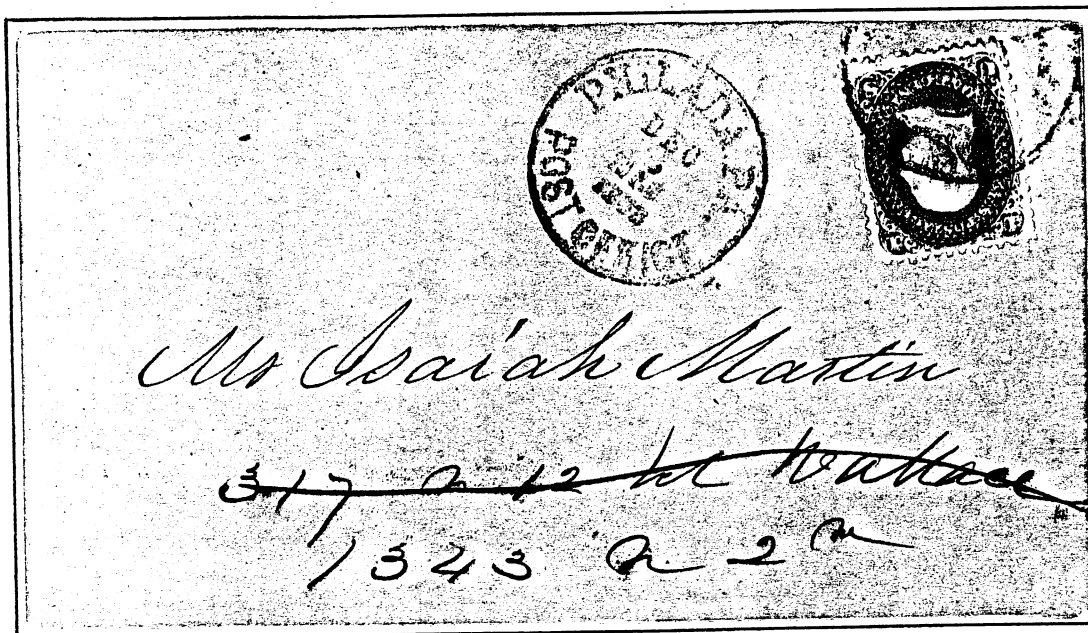 PHILADA. PA.
DEC
2
POST OFFICE
Mr Isaiah Martin
317 N 12 Wallace
1343 N 2